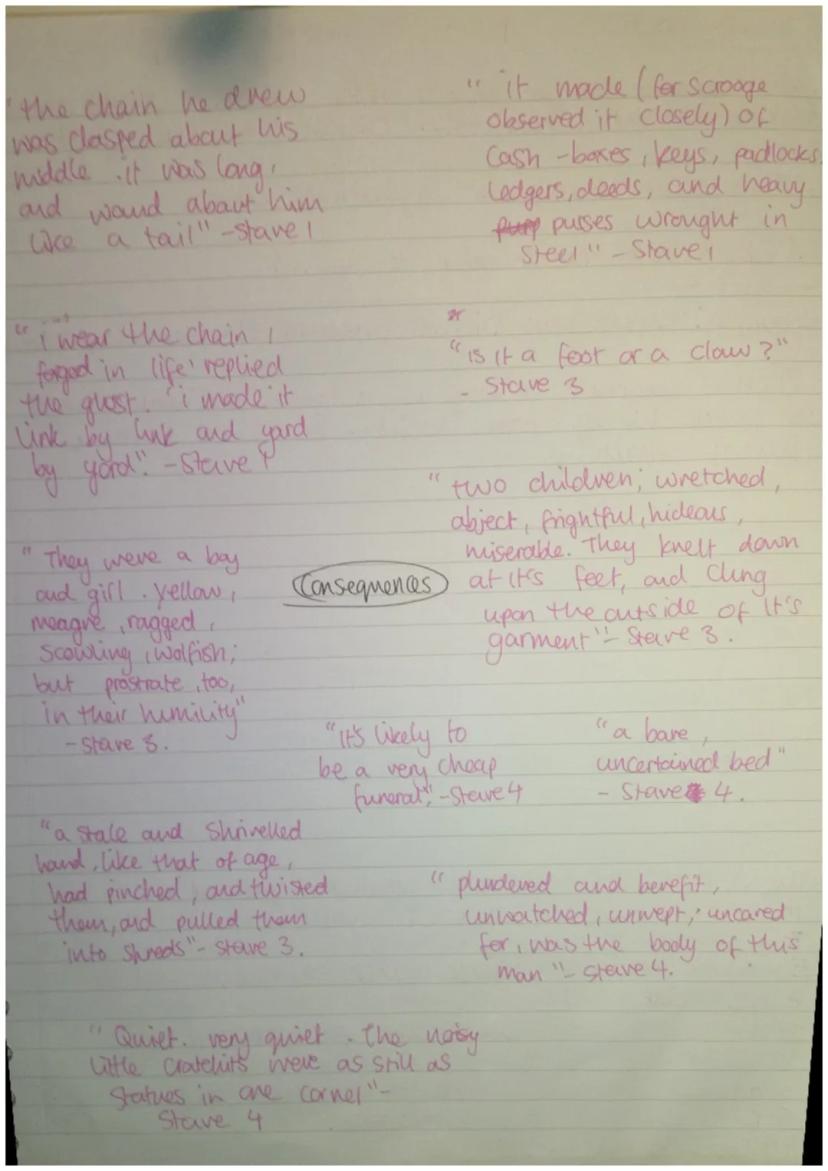 "the chain he drew
was clasped about his
middle. it was long,
and wound about him
like a tail" - Stave 1
" it made (for Scrooge
observed it closely) of
cash - boxes, keys, padlocks,
ledgers, deeds, and heavy
purses wrought in
steel" - Stave 1
"i wear the chain i
forged in life' replied
the ghost. 'i made it
link by link and yard
by yard". - Stave 1
"is it a foot or a claw?"
- Stave 3
"two children; wretched,
abject, frightful, hideous,
miserable. They knelt down
at it's feet, and clung
upon the outside of it's
garment" - Stave 3.
"They were a boy
and girl. yellow,
meagre, ragged,
scowling, wolfish;
but prostrate, too,
in their humility"
- Stave 3.
Consequences
"it's likely to
be a very cheap
funeral". - Stave 4
"a bare,
uncertained bed"
- Stave 4.
"a stale and shrivelled
hand, like that of age,
had pinched, and twisted
them, and pulled them
into shreds" - Stave 3.
" plundered and benefit,
unwatched, unwept, uncared
for, was the body of this
man" - Stave 4.
"Quiet. very quiet. the noisy
little cratchits were as still as
statues in one corner" -
Stave 4